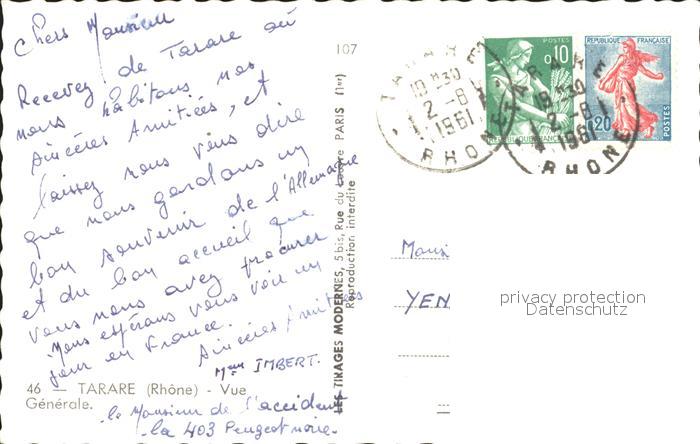 Chers Monsieur
Recevez de Tarare où
nous habitons nos
sincères Amitiées, et
laissez nous vous dire
que nous gardons un
bon souvenir de l'Allemagne
et du bon accueil que
vous nous avez procurer
Nous espérons vous voir un
jour en France.
Sincères Amitiées
Mme IMBERT.
46 — TARARE (Rhône) - Vue
Générale.
le Monsieur de l'accident
la 403 Peugeot noire.
107
LES TIRAGES MODERNES, 5 bis, Rue du Louvre PARIS (1er)
Reproduction interdite
TARARE
18H30
2-8
1961
RHONE
POSTES
0,10
REPUBLIQUE FRANÇAISE
TARARE
18H30
2-8
1961
RHONE
REPUBLIQUE FRANÇAISE
0,20
POSTES
YEN
privacy protection
Datenschutz